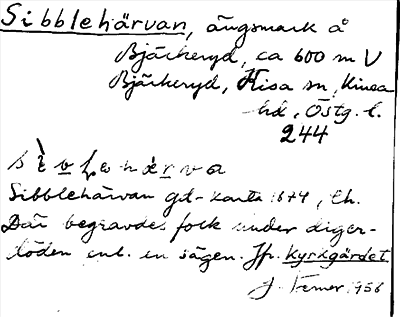 Sibblehärvan, ängsmark å
Bjärkeryd, ca 600 m V
Bjärkeryd, Kisa sn, Kinda
hd, Östg. l.
244
Sibblehärvan gd-karta 1674, Ch.
Där begravdes folk under diger-
döden enl. en sägen. Jfr. Kyrkgärdet
J. Ferner 1956